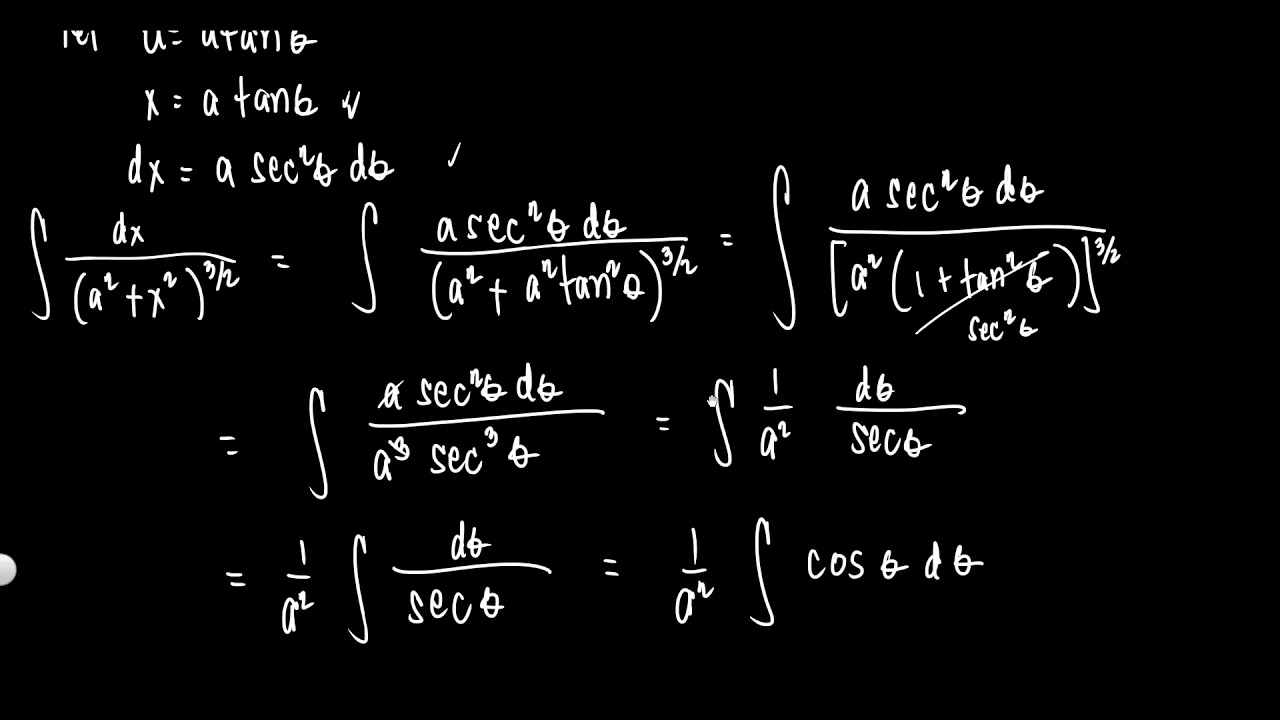 let u = a tanθ
x = a tanθ ✓
dx = a sec²θ dθ ✓
∫ dx/(a² + x²)^3/2 = ∫ a sec²θ dθ/(a² + a² tan²θ)^3/2 = ∫ a sec²θ dθ/[a² (1 + tan²θ)]^3/2
sec²θ
= ∫ a sec²θ dθ/a³ sec³θ = ∫ 1/a² dθ/secθ
= 1/a² ∫ dθ/secθ = 1/a² ∫ cosθ dθ